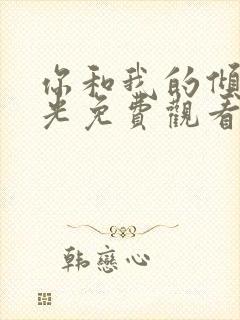 你和我的傾
光免費觀看
韩戀心